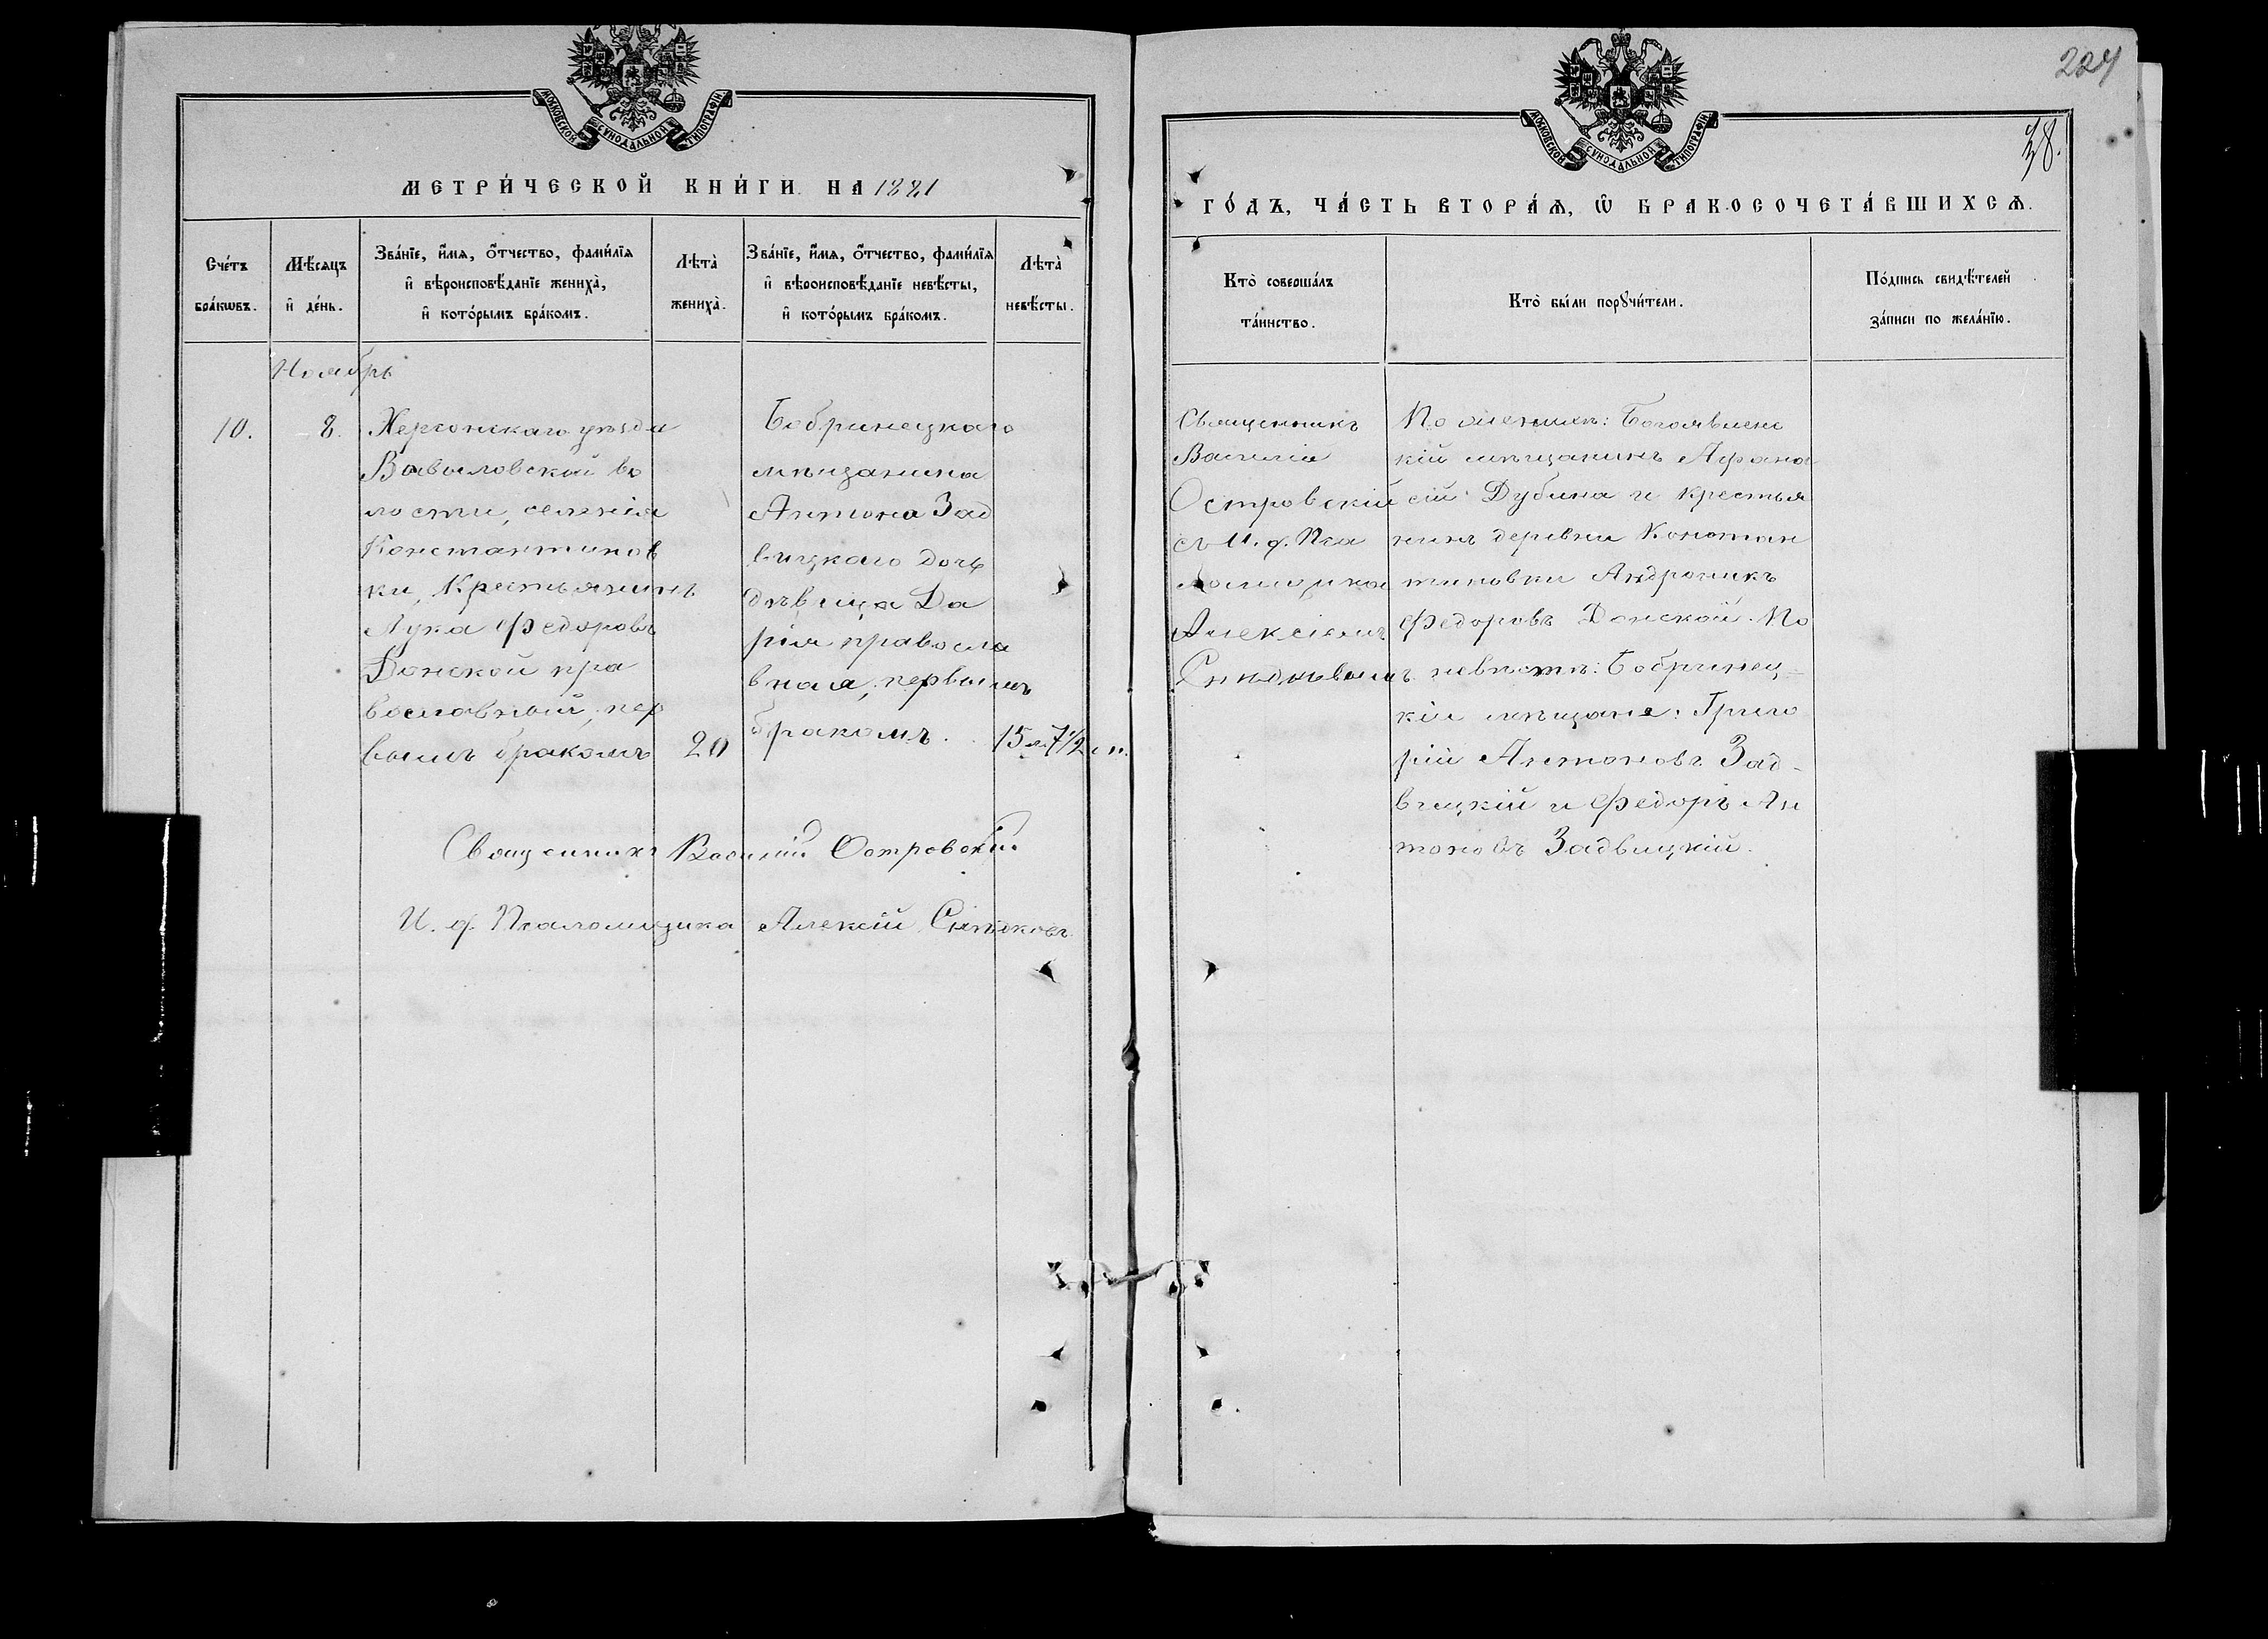 МОСКОВСКОЙ СѴНОДАЛЬНОЙ ТИПОГРАФІИ
МЕТРИ́ЧЕСКОЙ КНИ́ГИ НА 1881
Сче́тъ бра́кѡвъ.
Мѣ́сяцъ и де́нь.
Зва́нїе, и́мя, ѻ́тчество, фами́лїя
и вѣроисповѣ́данїе жениха̀,
и кото́рымъ бра́комъ.
Лѣта̀ жениха̀.
Зва́нїе, и́мя, ѻ́тчество, фами́лїя
и вѣроисповѣ́данїе невѣ́сты,
и кото́рымъ бра́комъ.
Лѣта̀ невѣ́сты.
Ноябрь
10.
8.
Херсонскаго уѣзда
Вавиловской во
лости, селенія
Константинов
ки, Крестьянинъ
Лука Федоровъ
Донской пра
вославный, пер
вымъ бракомъ
20
Бобринецкаго
мѣщанина
Антона Зад
вицкаго дочь
дѣвица Да
рія правосла
вная, первымъ
бракомъ.
15 л. 7 1/2 м.
Священникъ Василій Островскій.
И. д. Псаломщика Алексій
224
38.
МОСКОВСКОЙ СѴНОДАЛЬНОЙ ТИПОГРАФІИ
ГО́ДЪ, ЧА́СТЬ ВТОРА́Ѧ, Ѿ БРАКОСОЧЕТА́ВШИХСѦ.
Кто̀ соверша́лъ
та́инство.
Кто̀ бы́ли порꙋчи́тели.
По́дпись свидѣ́телей
за́писи по жела́нїю.
Священникъ
Василій
Островскій
съ И. д. Пса
ломщика
Алексіемъ
По женихѣ: Богоявленс
кій мѣщанинъ Афана
сій Дубина и крестья
нинъ деревни Констан
тиновки Андроникъ
Федоровъ Донской. По
невѣстѣ: Бобринец=
кіе мѣщане: Григо
рій Антоновъ Зад-
вицкій и Федоръ Ан
тоновъ Задвицкій.